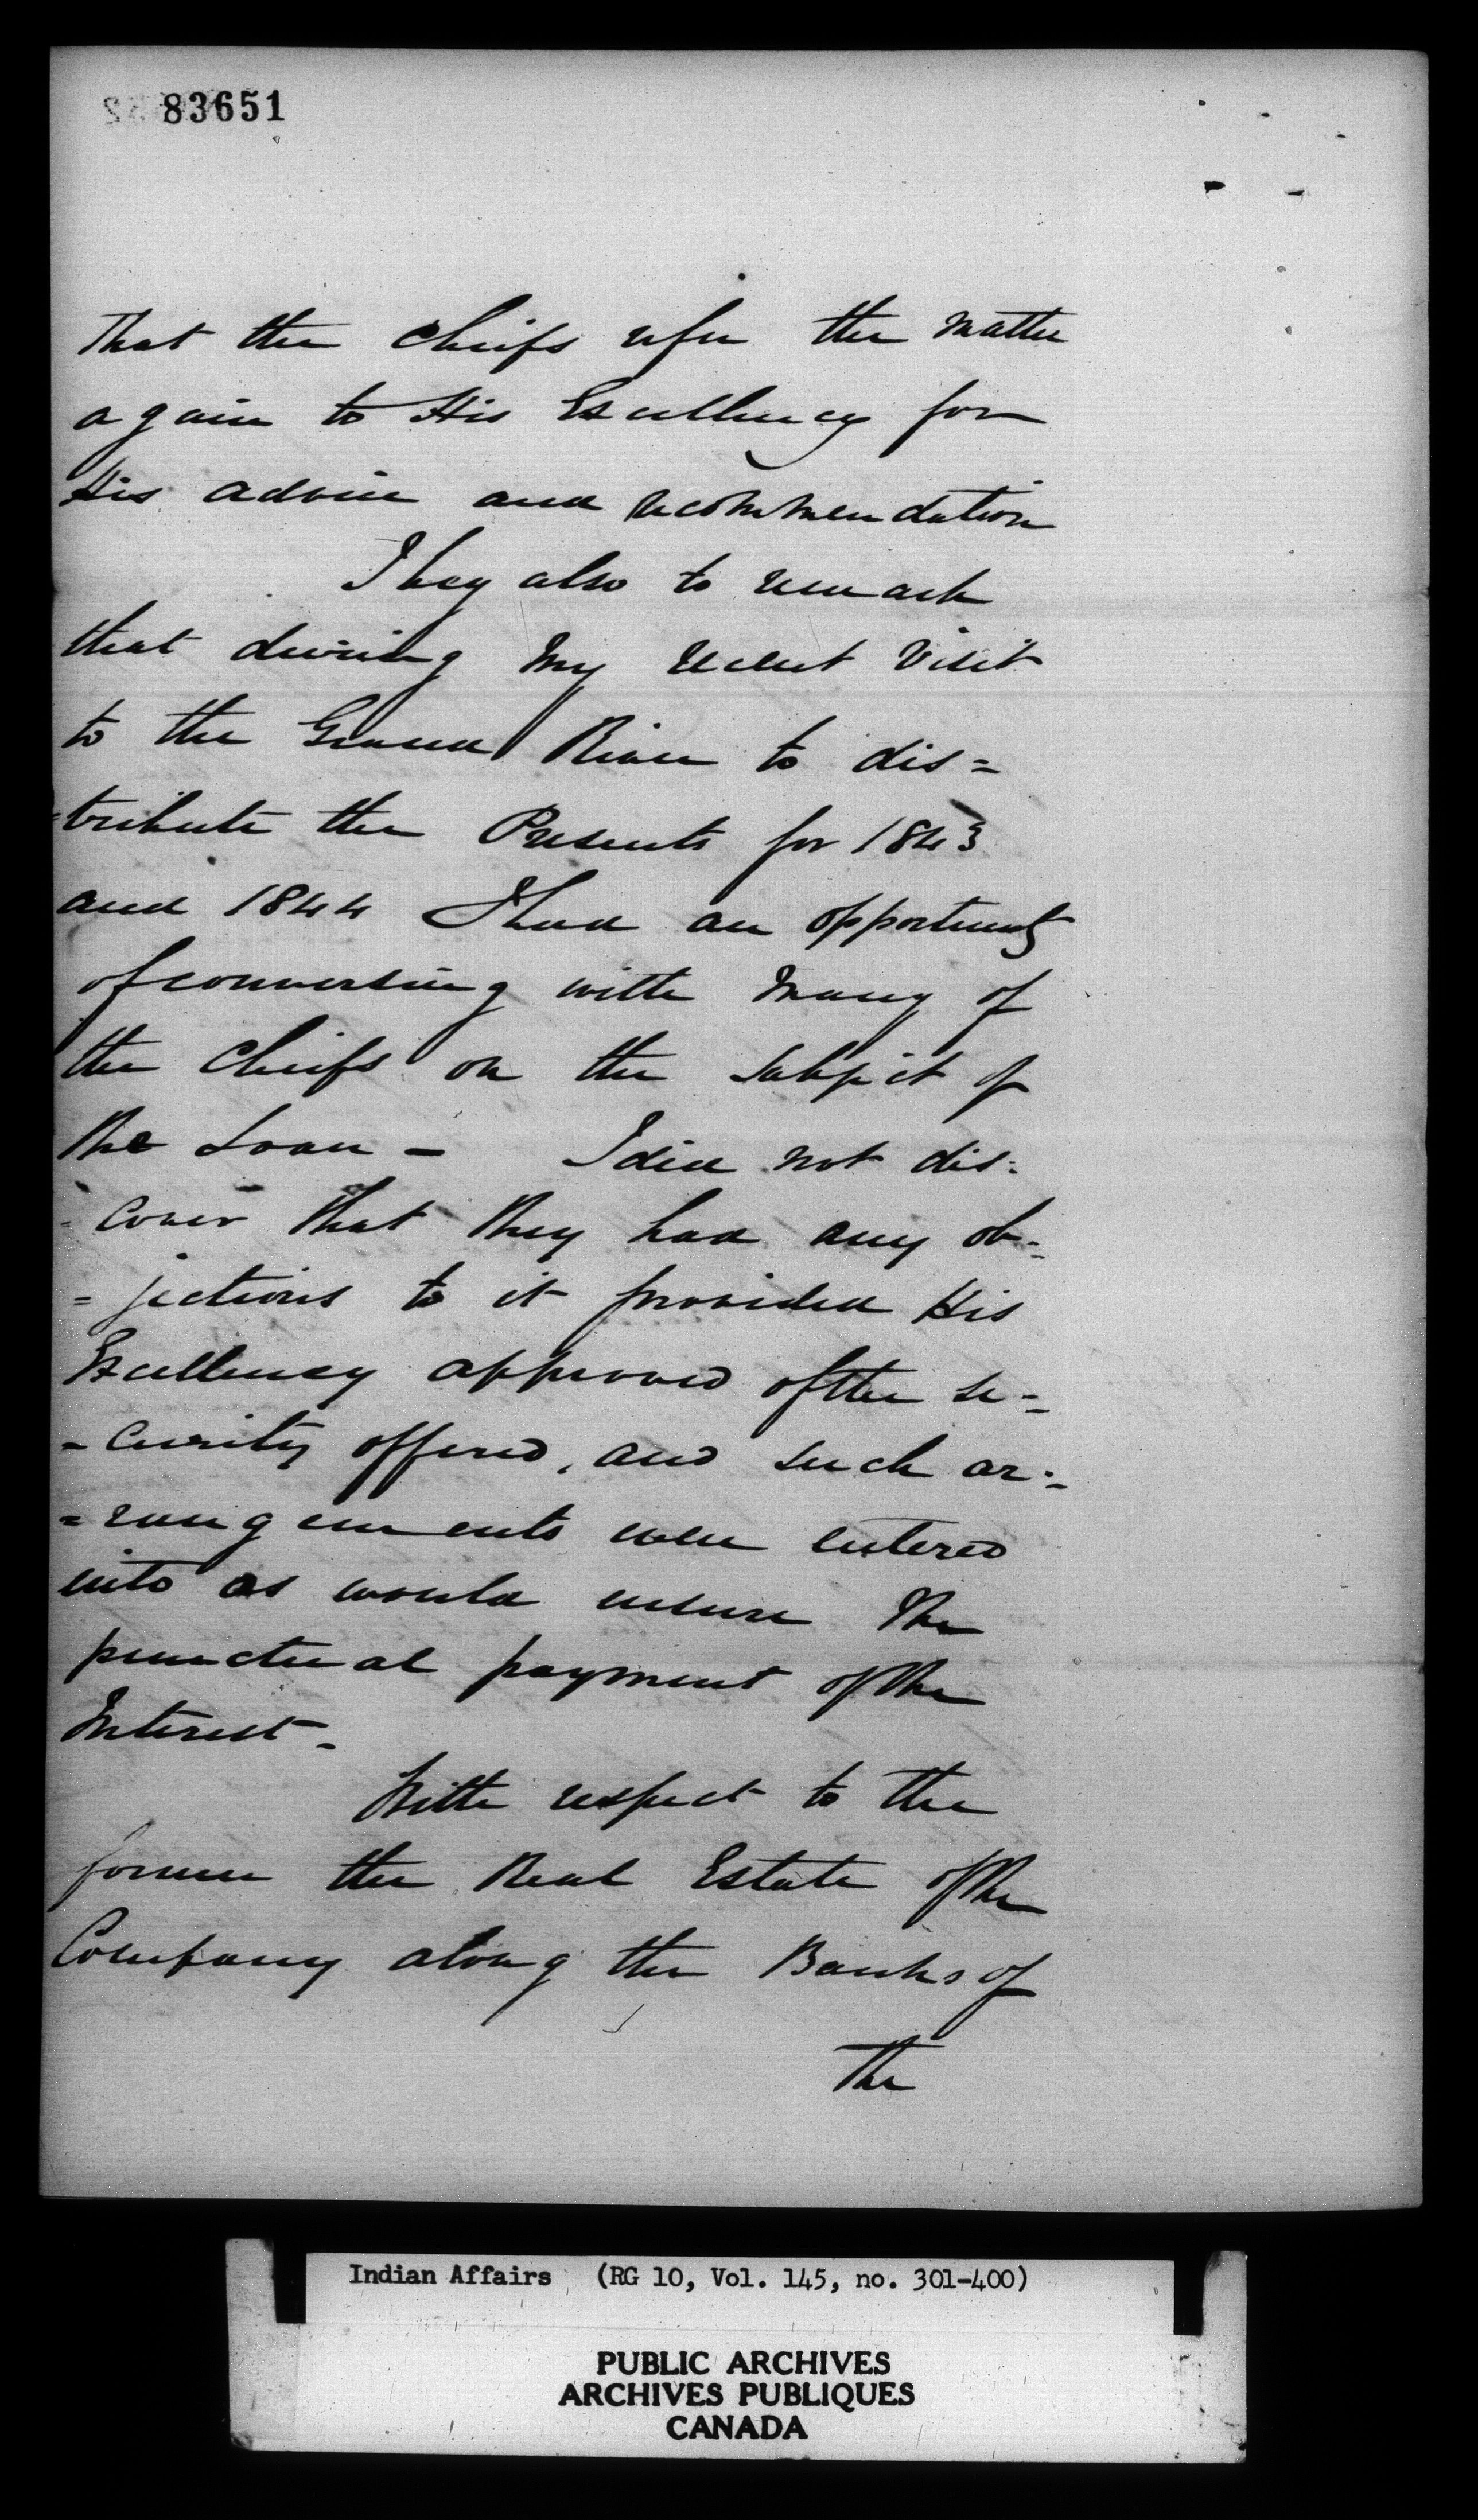 83651
That the Chiefs refer the matter
again to His Excellency for
His advice and recommendation
I beg also to remark
that during my recent visit
to the Grand River to dis=
=tribute the Presents for 1843
and 1844 I had an opportunity
of conversing with many of
the Chiefs on the subject of
the Loan - I did not dis=
=cover that they had any ob=
=jections to it provided His
Excellency approved of the se=
=curity offered, and such ar=
=rangements were entered
into as would ensure the
punctual payment of the
Interest -
With respect to the
former the Real Estate of the
Company along the Banks of
the
Indian Affairs (RG 10, Vol. 145, no. 301-400)
PUBLIC ARCHIVES
ARCHIVES PUBLIQUES
CANADA